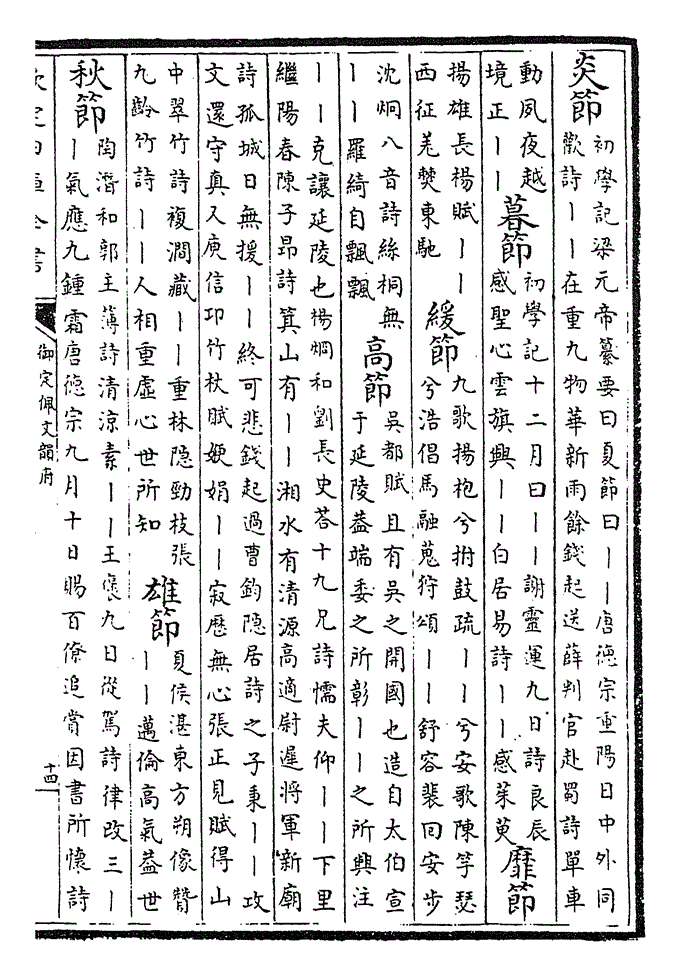 炎節
初學記梁元帝纂要曰夏節曰丨丨唐德宗重陽日中外同
歡詩丨丨在重九物華新雨餘錢起送薛判官赴蜀詩單車
動夙夜越
境正丨丨
暮節
初學記十二月曰丨丨謝靈運九日詩良辰
感聖心雲旗興丨丨白居易詩丨丨感茱萸
靡節
揚雄長楊賦丨丨
西征羌僰東馳
緩節
九歌揚枹兮拊鼓疏丨丨兮安歌陳竽瑟
兮浩倡馬融蒐狩頌丨丨舒容裴回安步
沈炯八音詩絲桐無
丨丨羅綺自飄飄
高節
吳都賦且有吳之開國也造自太伯宣
于延陵葢端委之所彰丨丨之所興注
丨丨克讓延陵也楊烱和劉長史荅十九兄詩懦夫仰丨丨下里
繼陽春陳子昂詩箕山有丨丨湘水有清源高適尉遲將軍新廟
詩孤城日無援丨丨終可悲錢起過曹鈞隱居詩之子秉丨丨攻
文還守真又庾信邛竹杖賦㛹娟丨丨寂歷無心張正見賦得山
中翠竹詩複澗藏丨丨重林隱勁枝張
九齡竹詩丨丨人相重虛心世所知
雄節
夏侯湛東方朔像贊
丨丨邁倫高氣葢世
秋節
陶潛和郭主簿詩清涼素丨丨王褒九日從駕詩律改三丨
丨氣應九鍾霜唐德宗九月十日賜百僚追賞因書所懷詩
欽定四庫全書
御定佩文韻府
十四